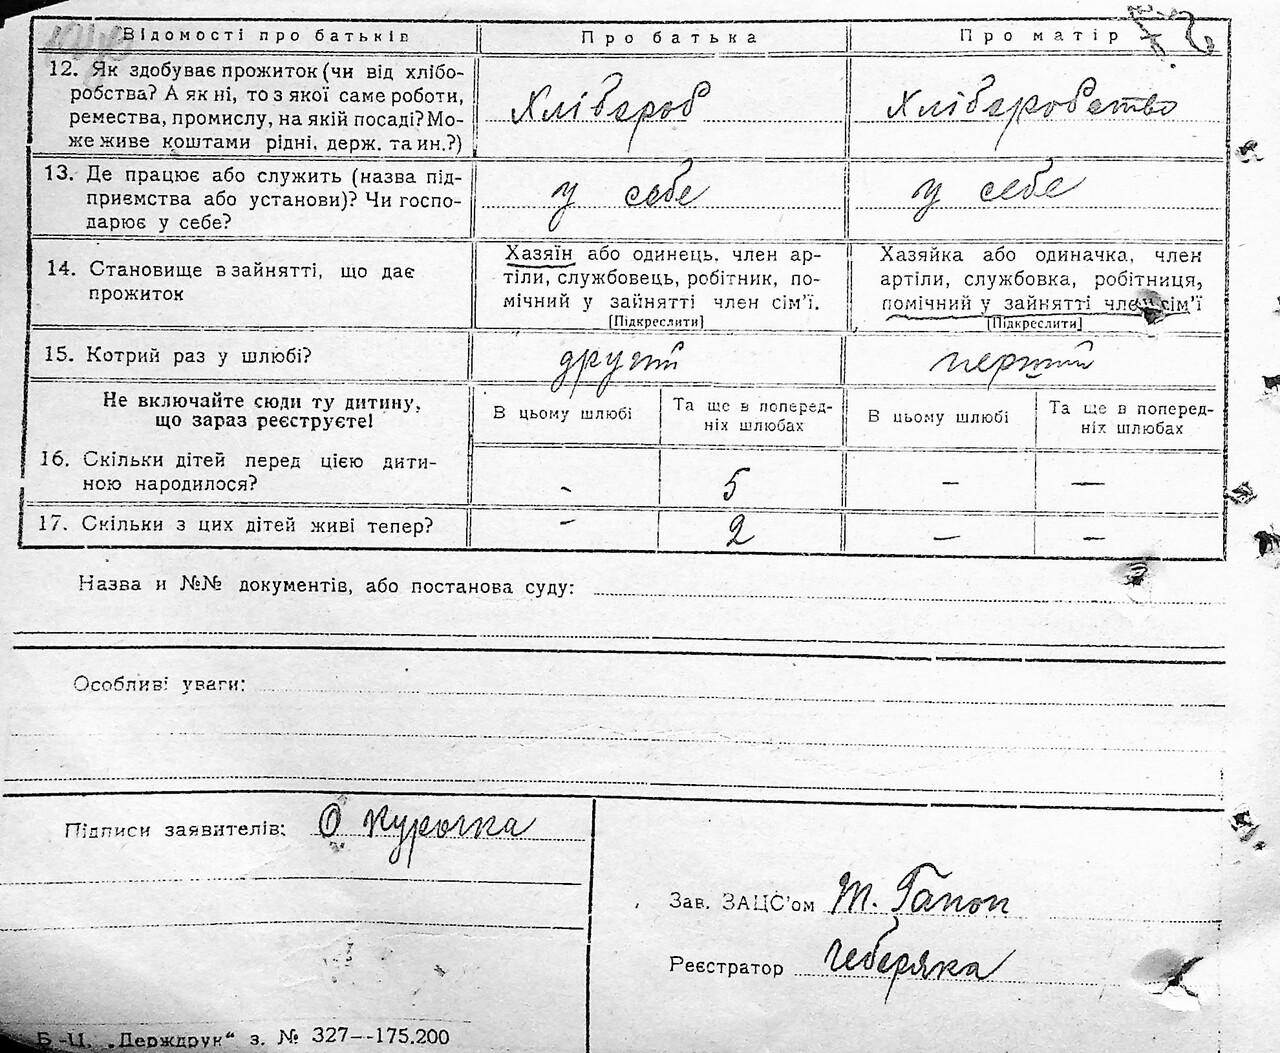 Відомості про батьків Про батька Про матір
12. Як здобуває прожиток (чи від хлібо-
робства? А як ні, то з якої саме роботи,
ремества, промислу, на якій посаді? Мо-
же живе коштами рідні, держ. та ин.?)
Хлібороб Хліборобство
13. Де працює або служить (назва під-
приємства або установи)? Чи госпо-
дарює у себе?
у себе у себе
14. Становище в зайнятті, що дає
прожиток
Хазяїн або одинець, член ар-
тіли, службовець, робітник, по-
мічний у зайнятті член сім'ї.
[Підкреслити]
Хазяйка або одиначка, член
артіли, службовка, робітниця,
помічний у зайнятті член сім'ї
[Підкреслити]
15. Котрий раз у шлюбі? другий перший
Не включайте сюди ту дитину,
що зараз реєструєте!
В цьому шлюбі
Та ще в поперед-
ніх шлюбах
В цьому шлюбі
Та ще в поперед-
ніх шлюбах
16. Скільки дітей перед цією дити-
ною народилося?
- 5 — —
17. Скільки з цих дітей живі тепер? - 2 — —
Назва и №№ документів, або постанова суду:
Особливі уваги:
Підписи заявителів: О Курочка
Зав. ЗАЦС'ом Т. Гапон
Реєстратор Чеберяка
Б.-Ц. „Держдрук“ з. № 327--175.200